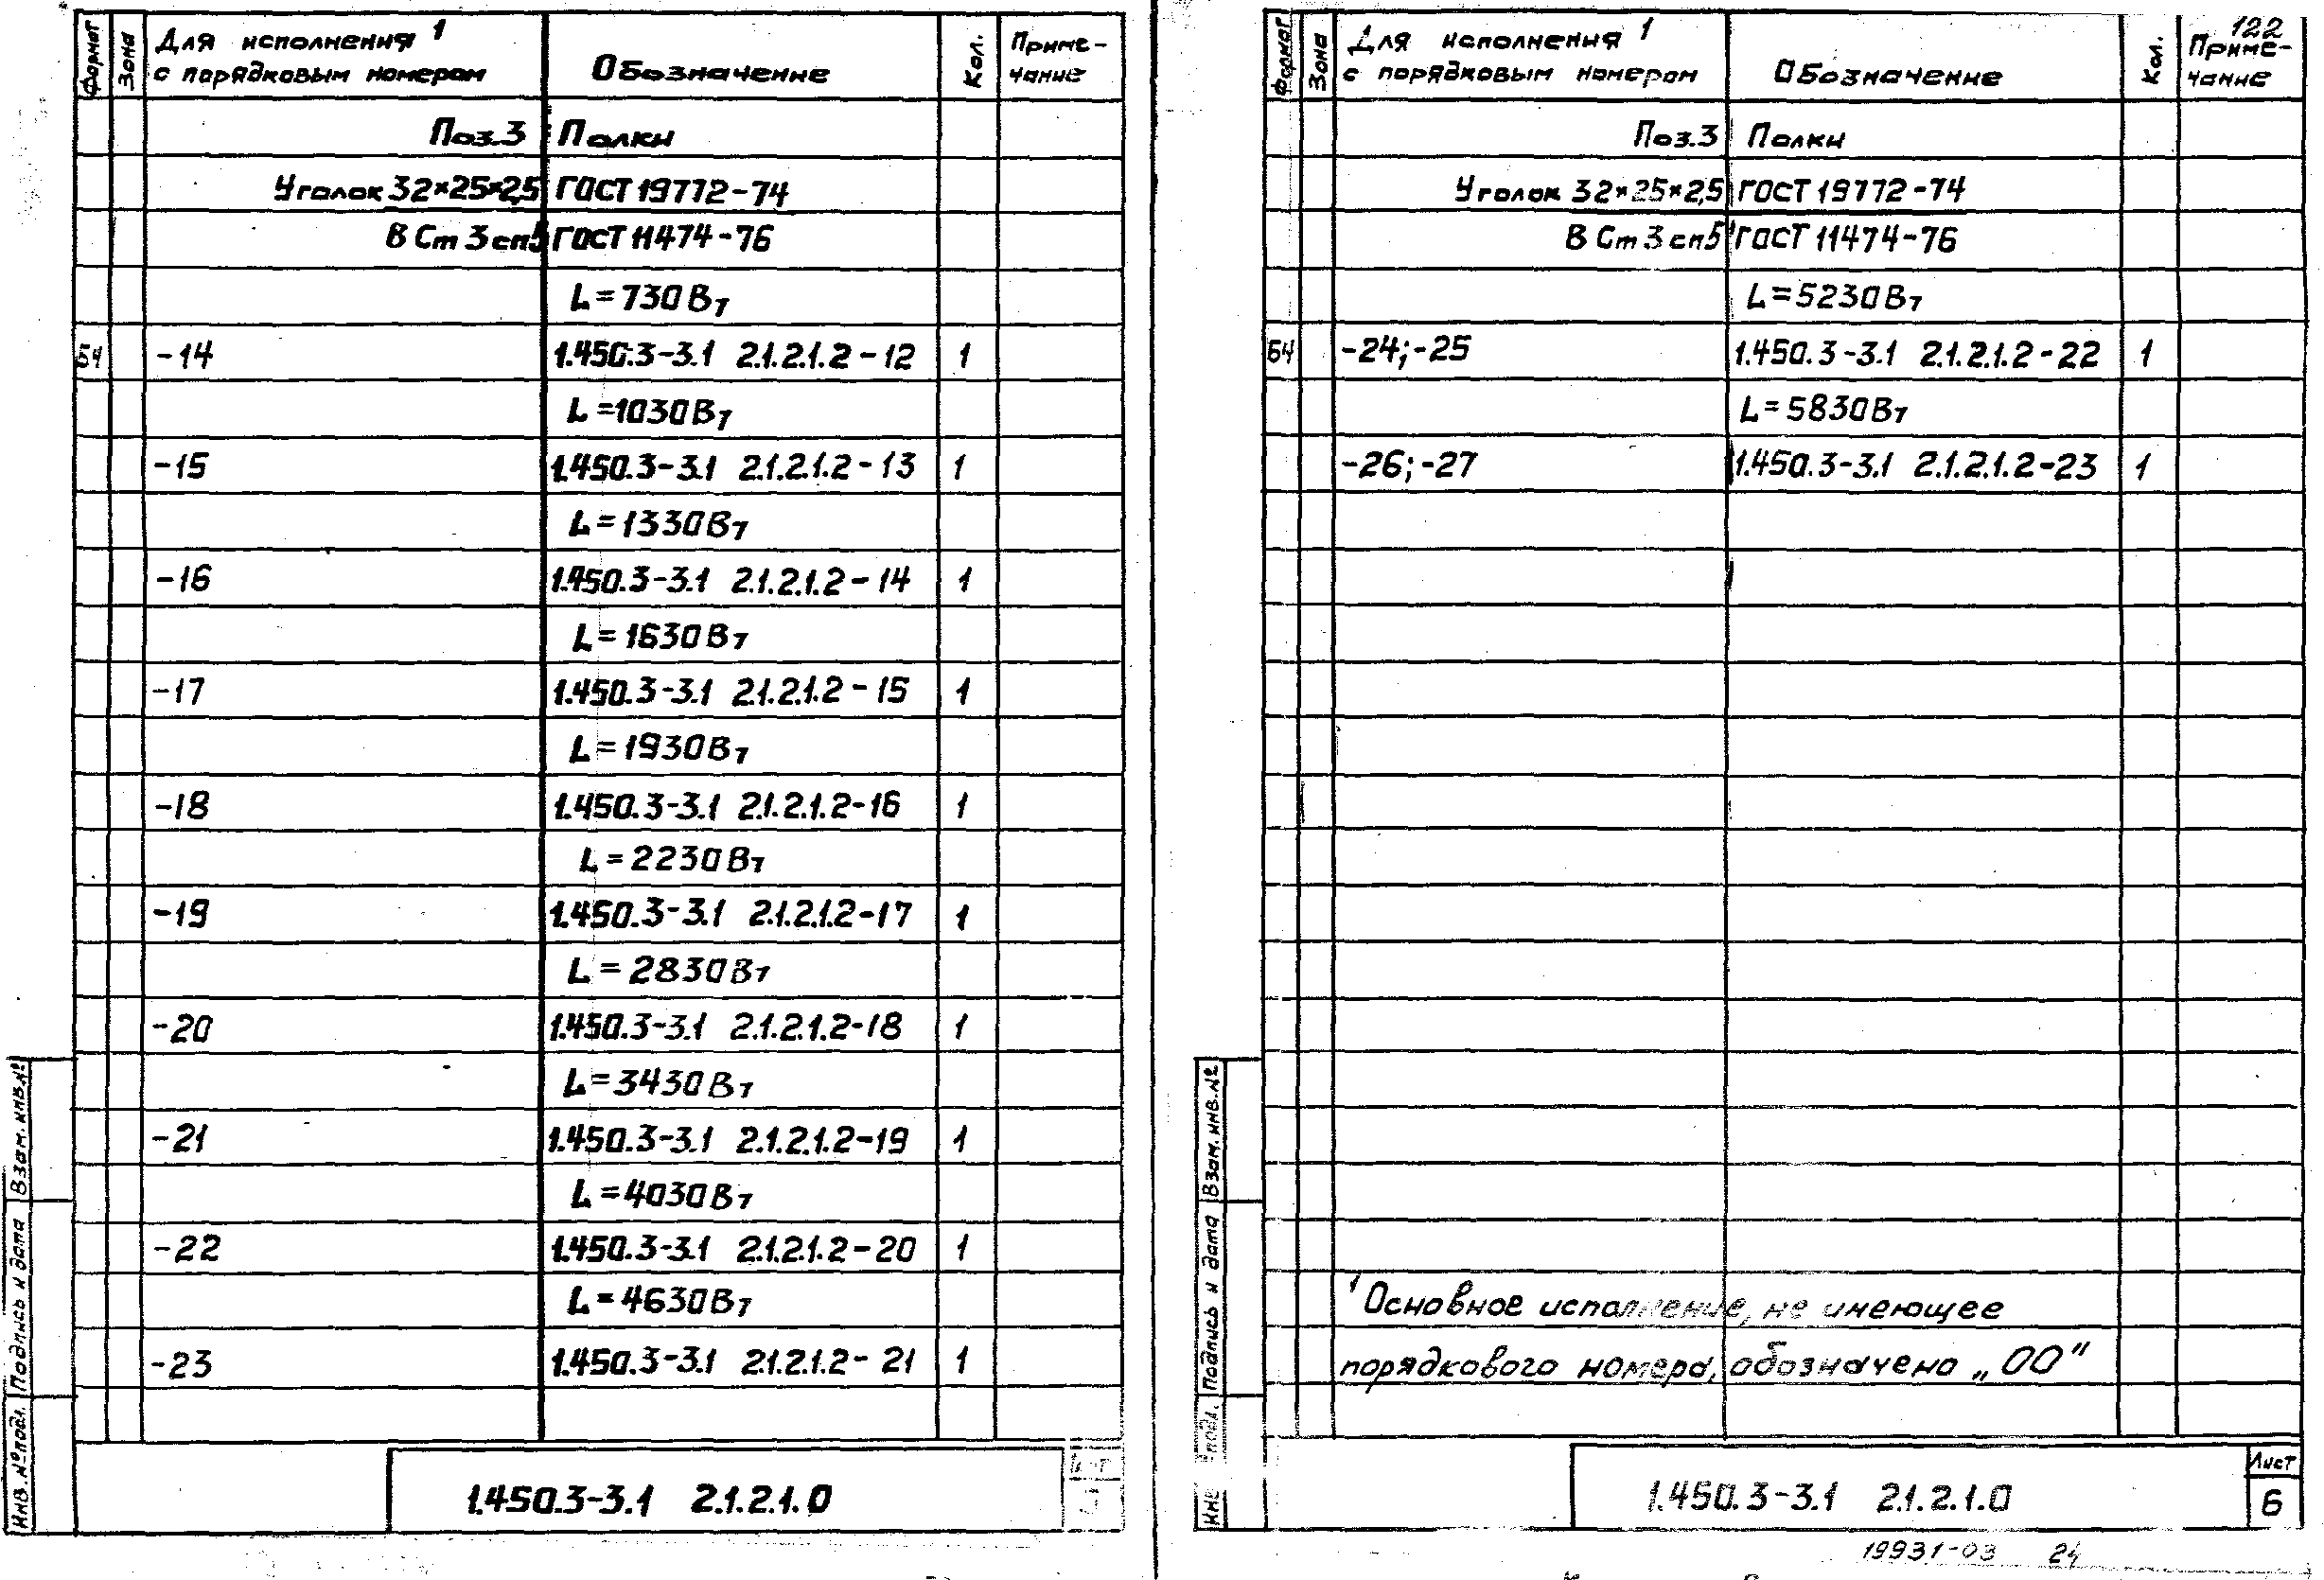 Формат
Зона
Для исполнения 1
с порядковым номером
Обозначение
Кол.
Приме-
чание
Поз.3 Полки
Уголок 32×25×2,5 ГОСТ 19772-74
В Ст 3 сп5 ГОСТ 11474-76
L=730Вт
БЧ -14 1.450.3-3.1 2.1.2.1.2-12 1
L=1030Вт
-15 1.450.3-3.1 2.1.2.1.2-13 1
L=1330Вт
-16 1.450.3-3.1 2.1.2.1.2-14 1
L=1630Вт
-17 1.450.3-3.1 2.1.2.1.2-15 1
L=1930Вт
-18 1.450.3-3.1 2.1.2.1.2-16 1
L=2230Вт
-19 1.450.3-3.1 2.1.2.1.2-17 1
L=2830Вт
-20 1.450.3-3.1 2.1.2.1.2-18 1
L=3430Вт
-21 1.450.3-3.1 2.1.2.1.2-19 1
L=4030Вт
-22 1.450.3-3.1 2.1.2.1.2-20 1
L=4630Вт
-23 1.450.3-3.1 2.1.2.1.2-21 1
Взам. инв.№
Подпись и дата
Инв.№подл.
1.450.3-3.1 2.1.2.1.0
122
Формат
Зона
Для исполнения 1
с порядковым номером
Обозначение
Кол.
Приме-
чание
Поз.3 Полки
Уголок 32×25×2,5 ГОСТ 19772-74
В Ст 3 сп5 ГОСТ 11474-76
L=5230Вт
БЧ -24;-25 1.450.3-3.1 2.1.2.1.2-22 1
L=5830Вт
-26;-27 1.450.3-3.1 2.1.2.1.2-23 1
1 Основное исполнение, не имеющее
порядкового номера, обозначено „00"
Взам. инв.№
Подпись и дата
подл.
1.450.3-3.1 2.1.2.1.0
Лист
6
19931-03 24